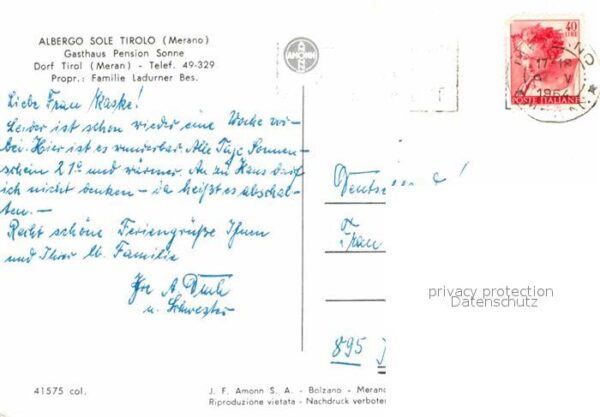 ALBERGO SOLE TIROLO (Merano)
Gasthaus Pension Sonne
Dorf Tirol (Meran) - Telef. 49-329
Propr.: Familie Ladurner Bes.
AMONN
40
LIRE
MERANO
17-18
V
1964
POSTE ITALIANE
Liebe Frau Maske!
Leider ist schon wieder eine Woche vor-
bei. Hier ist es wunderbar. Alle Tage Sonnen-
schein 21° und wärmer. An zu Haus darf
ich nicht denken - da heißt es abschal-
ten. -
Recht schöne Feriengrüße Ihnen
und Ihrer lb. Familie
Ihre A.
u. Schwester
Deutschland!
Frau
895
privacy protection
Datenschutz
41575 col.
J. F. Amonn S. A. - Bolzano - Merano
Riproduzione vietata - Nachdruck verboten